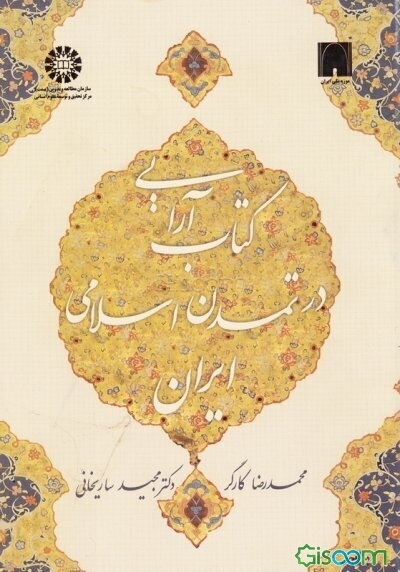 موزه ملی ایران
سازمان مطالعه و تدوین (سمت)
مرکز تحقیق و توسعه علوم انسانی
کتاب آرایی
در تمدن اسلامی
ایران
محمدرضا کارگر
دکتر مجید ساریخانی
Gisoom.com